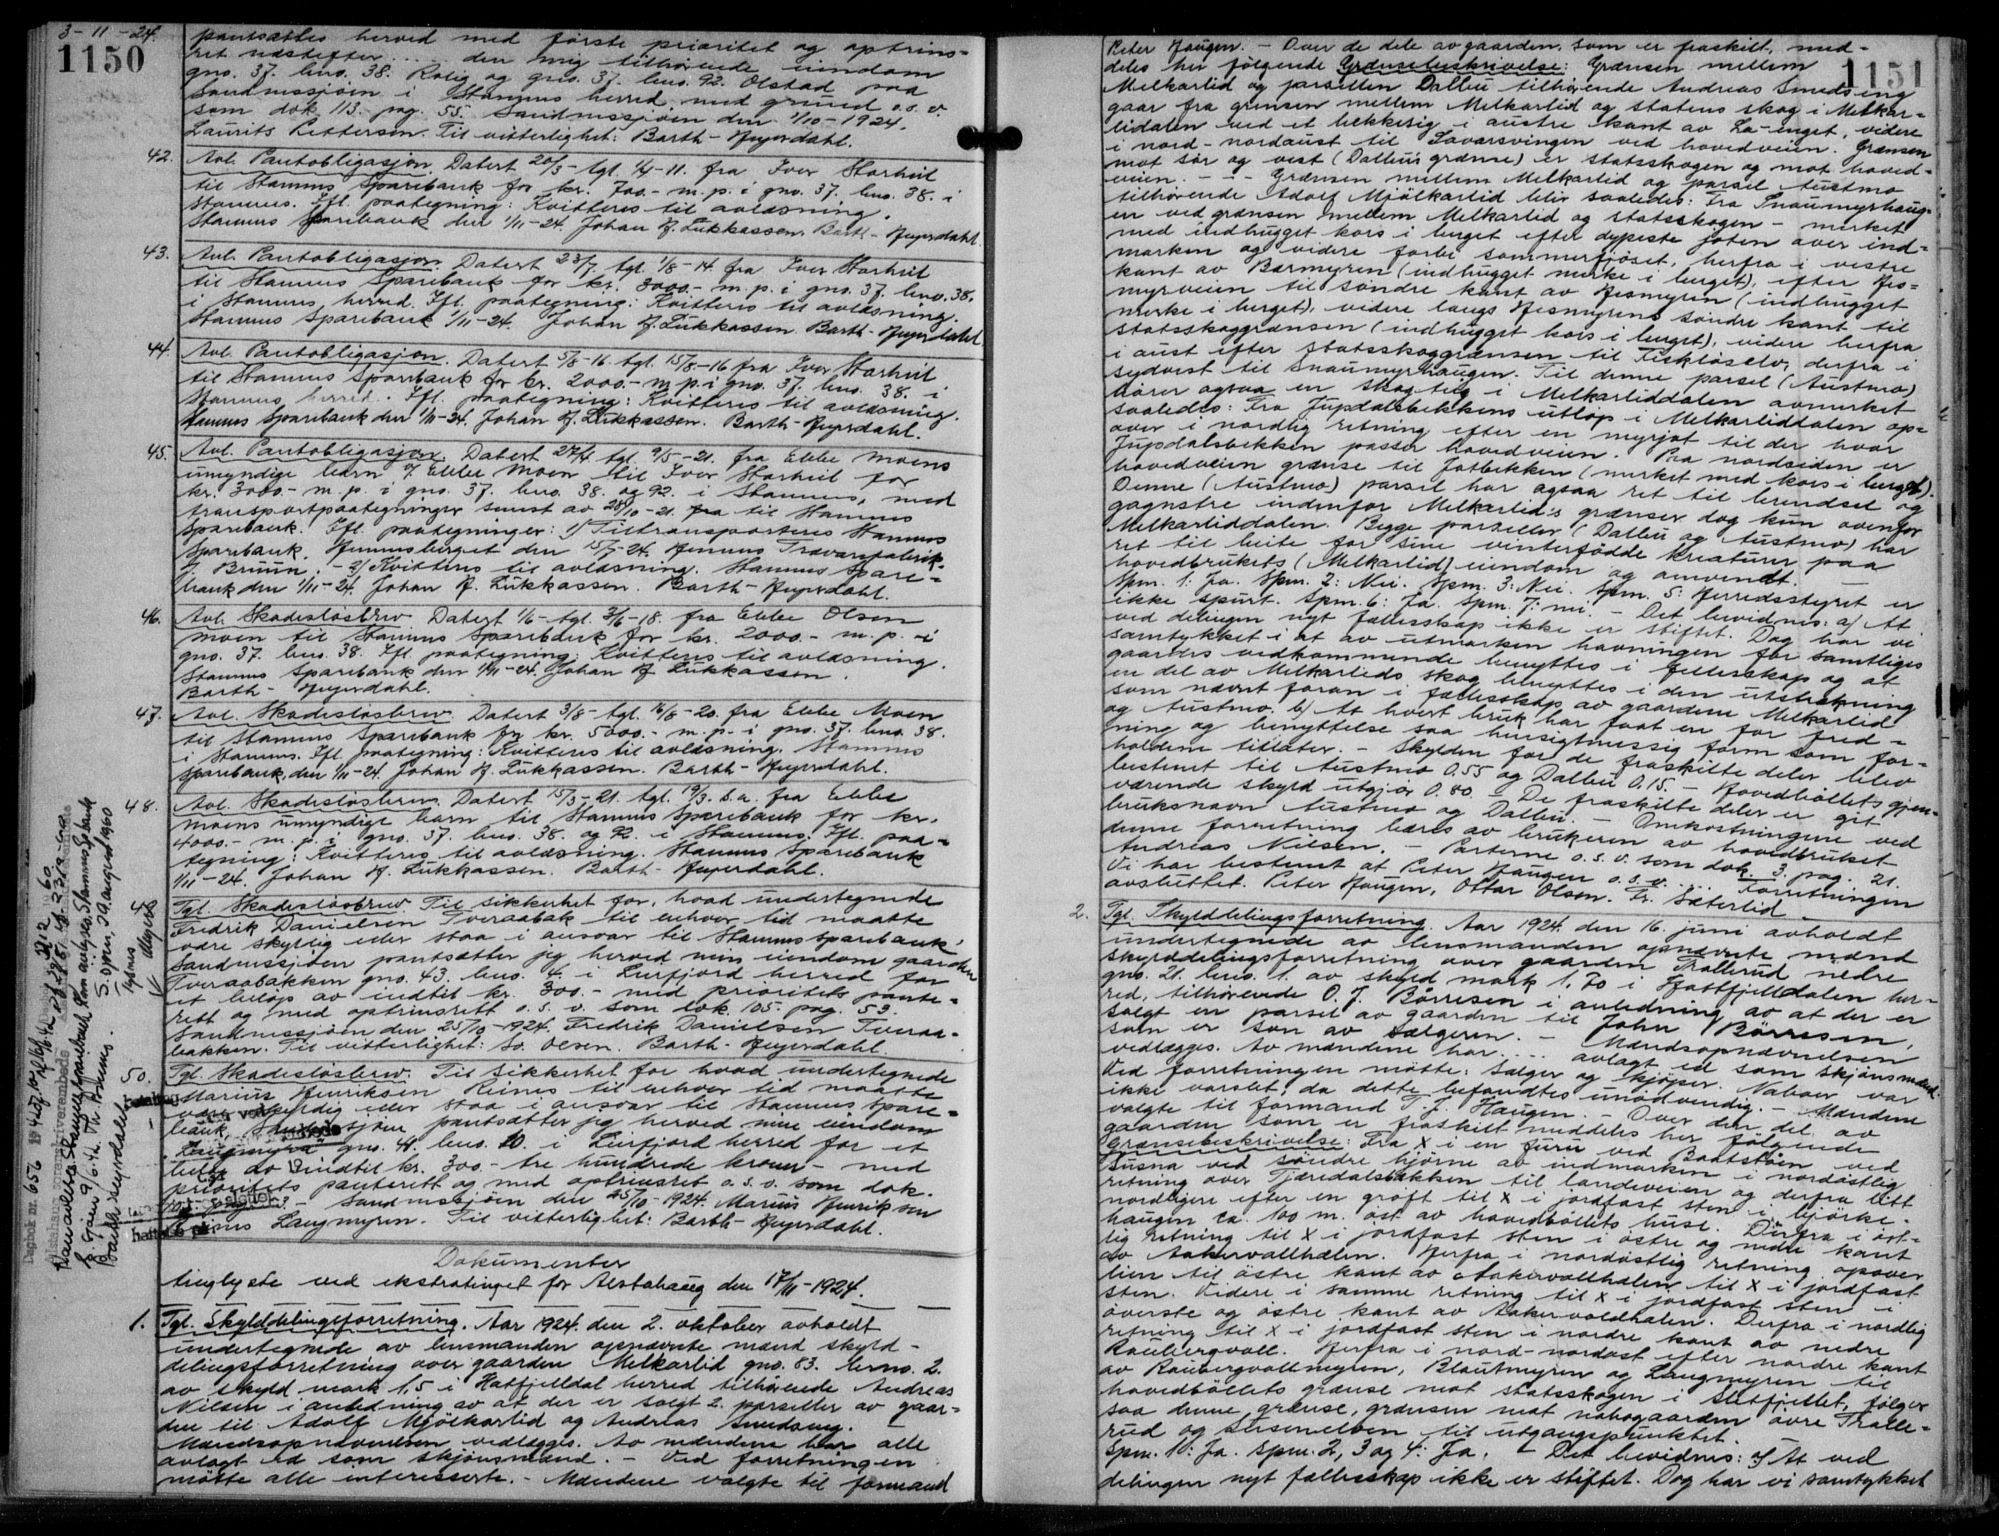 3-11-24.
1150
pantsættes herved med første prioritet og optrins-
ret næstefter ... den mig tilhørende eiendom
gno. 37. bno. 38. Rolig og gno. 37. bno. 92. Olstad paa
Sandnessjøen i Stamnes herred, med grund o.s.v.
som dok 113. pag. 55. Sandnessjøen den 1/10-1924.
Laurits Pettersen. Til vitterlighet: Barth-Heyerdahl.
42. Avl. Pantobligasjon. Datert 20/3- tgl. 1/4-11. fra Iver Storheil
til Stamnes Sparebank for kr. 700.- m.p. i gno. 37. bno. 38. i
Stamnes. Ifl. paategning: Kvitteres til avlæsning.
Stamnes Sparebank den 1/11-24. Johan H. Lukkassen. Barth-Heyerdahl.
43. Avl. Pantobligasjon. Datert 23/7. tgl. 1/8-14. fra Iver Storheil
til Stamnes Sparebank for kr. 3000.- m.p. i gno. 37. bno. 38.
i Stamnes herred. Ifl. paategning: Kvitteres til avlæsning.
Stamnes Sparebank 1/11-24. Johan H. Lukkassen. Barth-Heyerdahl
44. Avl. Pantobligasjon. Datert 5/8-16. tgl. 15/8-16 fra Iver Storheil
til Stamnes Sparebank for kr. 2000.- m.p. i gno. 37. bno. 38. i
Stamnes herred. Ifl. paategning: Kvitteres til avlæsning.
Stamnes Sparebank den 1/11-24. Johan H. Lukkassen. Barth-Heyerdahl.
45. Avl. Pantobligasjon. Datert 27/4. tgl. 9/5-21. fra Ebbe Moens
umyndige barn v/ Ebbe Moen til Iver Storheil for
kr. 3000.- m.p. i gno. 37. bno. 38. og 92. i Stamnes, med
transportpaategninger senest av 28/10-21. fra til Stamnes
Sparebank. Ifl. paategninger: 1) Tiltransporteres Stamnes
Sparebank. Hemnesberget den 15/7-24. Hemnes Trævarefabrik.
J. Bruun. - 2) Kvitteres til avlæsning. Stamnes Spare-
bank den 1/11-24. Johan H. Lukkassen. Barth-Heyerdahl.
46. Avl. Skadesløsbrev. Datert 1/6- tgl. 3/6-18. fra Ebbe Olsen
Moen til Stamnes Sparebank for kr. 2000.- m.p.- i
gno. 37. bno. 38. Ifl. paategning: Kvitteres til avlæsning.
Stamnes Sparebank den 1/11-24. Johan H. Lukkassen.
Barth-Heyerdahl.
47. Avl. Skadesløsbrev. Datert 3/8- tgl. 16/8-20. fra Ebbe Moen
til Stamnes Sparebank for kr. 5000.- m.p. i gno. 37. bno. 38.
i Stamnes. Ifl. paategning: Kvitteres til avlæsning. Stamnes
Sparebank, den 1/11-24. Johan H. Lukkassen. Barth-Heyerdahl.
48. Avl. Skadesløsbrev. Datert 15/3-21. tgl. 19/3. s.a. fra Ebbe
Moens umyndige barn til Stamnes Sparebank for kr.
4000.- m.p. i gno. 37. bno. 38. og 92. i Stamnes. Ifl. paa-
tegning: Kvitteres til avlæsning. Stamnes Sparebank
1/11-24. Johan H. Lukkassen. Barth-Heyerdahl.
49. Tgl. Skadesløsbrev. Til sikkerhet for, hvad undertegnede
Fredrik Danielsen Tveraabak til enhver tid maatte
være skyldig eller staa i ansvar til Stamnes Sparebank,
Sandnessjøen pantsætter jeg herved min eiendom gaarden
Tveraabakken gno. 43. bno. 4. i Leirfjord herred for
et beløp av indtil kr. 300.- med prioritets pante-
rett og med optrinsrett o.s.v. som dok. 105. pag. 53.
Sandnessjøen den 25/10-1924. Fredrik Danielsen Tveraa-
bakken. Til vitterlighet: So. Olsen. Barth-Heyerdahl.
50. Tgl. Skadesløsbrev. Til sikkerhet for hvad undertegnede
Marius Henriksen Reines til enhver tid maatte
være skyldig eller staa i ansvar til Stamnes Spare-
bank, Sandnessjøen pantsætter jeg herved min eiendom
"Langmyra" gno. 41. bno. 10. i Leirfjord herred for et
beløp av indtil kr. 300.- tre hundrede kroner- med
prioritets panterett og med optrinsret o.s.v. som dok.
Sandnessjøen den 25/10-1924. Marius Henriksen
Reines Langmyren. Til vitterlighet: Barth-Heyerdahl.
Dokumenter
tinglyste ved ekstratinget for Alstahaug den 17/11-1924.
1. Tgl. Skylddelingsforretning. Aar 1924. den 2. oktober avholdt
undertegnede av lensmanden opnævnte mænd skyld-
delingsforretning over gaarden Melkarlid gno. 83. brno. 2.
av skyld mark 1,5 i Hatfjelldal herred tilhørende Andreas
Nilsen i anledning av at der er solgt 2. parseller av gaar-
den til Adolf Mjölkarlid og Andreas Smedseng.
Mændsopnævnelsen vedlægges. Av mændene har alle
avlagt ed som skjønsmænd. - Ved forretningen
møtte alle interesserte. - Mændene valgte til formand
1151
Peter Haugen. - Over de dele av gaarden, som er fraskilt, med-
deles her følgende Grænsebeskrivelse: Grænsen mellem
Melkarlid og parsellen Dalbu tilhørende Andreas Smedseng
gaar fra grænsen mellem Melkarlid og statens skog i Melkar-
liddalen ved et bekkesig i austre kant av La-enget, videre
i nord-nordaust til Lavarsvingen ved hovedveien. Grænsen
mot sør og vest (Dalbu's grænse) er statsskogen og mot hoved-
veien. - - Grænsen mellem Melkarlid og parsel Austmo
tilhørende Adolf Mjölkarlid blir saaledes: Fra Snaumyrhaug-
en ved grænsen mellem Melkarlid og statsskogen - merket
med indhugget kors i berget efter dypeste foten over ind-
marken og videre forbi sommerfjøset, herfra i vestre
kant av Barmyren (indhugget merke i berget), efter Hes-
myrveien til søndre kant av Hesmyren (indhugget
merke i berget), videre langs Hesmyrens søndre kant til
statsskoggrænsen (indhugget kors i berget), videre herfra
i aust efter statsskoggrænsen til Fiskløselv, derfra i
sydvest til Snaumyrhaugen. Til denne parsel (Austmo)
hører ogsaa en skogteig i Melkarliddalen avmerket
saaledes: Fra Jupdalsbekkens utløp i Melkarliddalen op-
over i nordlig retning efter en myrjot til der hvor
Jupdalsbekken passer hovedveien. Paa nordsiden er
hovedveien grænse til Jotbekken (merket med kors i berget).
Denne (Austmo) parsel har ogsaa ret til brendsel og
gagnstre indenfor Melkarlid's grænser dog kun ovenfor
Melkarliddalen. Begge parseller (Dalbu og Austmo) har
ret til beite for sine vinterfødde kreaturer paa
hovedbrukets (Melkarlid) eiendom og omvendt. -
Spm. 1: Ja. Spm. 2: Nei. Spm. 3: Nei. Spm. 5: Herredsstyret er
ikke spurt. Spm. 6: Ja. Spm. 7: nei. - Det bevidnes: a) At
ved delingen nyt fællesskap ikke er stiftet. Dog har vi
samtykket i at av utmarken havningen for samtliges
gaarders vedkommende benyttes i fellesskap og at
en del av Melkarlids skog benyttes i den utstrekning
som nævnt foran i fællesskap av gaardene Melkarlid
og Austmo. b) At hvert bruk har faat en for fred-
ning og benyttelse saa hensigtmessig form som for-
holdene tillater. - Skylden for de fraskilte deler blev
bestemt til Austmo 0.55 og Dalbu 0.15. - Hovedbøllets gjen-
værende skyld utgjør 0.80. - De fraskilte deler er git
bruksnavn Austmo og Dalbu. - Omkostningene ved
denne forretning bæres av brukeren av hovedbruket
Andreas Nilsen. - Parterne o.s.v. som dok. 3. pag. 21.
Vi har bestemt at Peter Haugen o.s.v. ... Forretningen
avsluttet. Peter Haugen, Ottar Olsen. Fr. Sæterlid
2. Tgl. Skylddelingsforretning. Aar 1924. den 16. juni avholdt
undertegnede av lensmanden opnævnte mænd
skylddelingsforretning over gaarden Trallerud nedre
gno. 21. bno. 1. av skyld mark 1,70 i Hattfjelldalen her-
red, tilhørende O. J. Börresen i anledning av at der er
solgt en parsel av gaarden til John Börresen,
som er søn av sælgeren. - Mændsopnævnelsen
vedlægges. Av mændene har ... avlagt ed som skjønsmænd.
Ved forretningen møtte: Sælger og kjøper. Naboer var
ikke varslet, da dette befandtes unødvendig. - Mændene
valgte til formand T. J. Haugen. - Over den del av
gaarden som er fraskilt meddeles her følgende
Grænsebeskrivelse: Fra X i en furu ved Baatstøen ved
Susna ved søndre hjørne av indmarken i nordøstlig
retning over Tjæredalsbakken til landeveien og derfra litt
nordligere efter en grøft til X i jordfast sten i bjørke-
haugen ca. 100 m. øst av hovedbøllets huse. Derfra i øst-
lig retning til X i jordfast sten i østre og nedre kant
av Aakervallhalen. Herfra i nordøstlig retning opover
lien til østre kant av Aakervallhalen til X i jordfast
sten. Videre i samme retning til X i jordfast sten i
øverste og østre kant av Aakervoldhalen. Derfra i nordlig
retning til X i jordfast sten i nordre kant av nedre
Raubergvoll. Herfra i nord-nordost efter nordre kant
av Raubergvollmyren, Blautmyren og Langmyren til
hovedbøllets grænse mot statsskogen i Sletfjellet, følger
saa denne grænse, grænsen mot nabogaarden øvre Tralle-
rud og Susnaelven til utgangspunktet.
Spm. 1: Ja. Spm. 2, 3 og 4: Ja. - Det bevidnes: a) At ved
delingen nyt fællesskap ikke er stiftet. Dog har vi samtykket